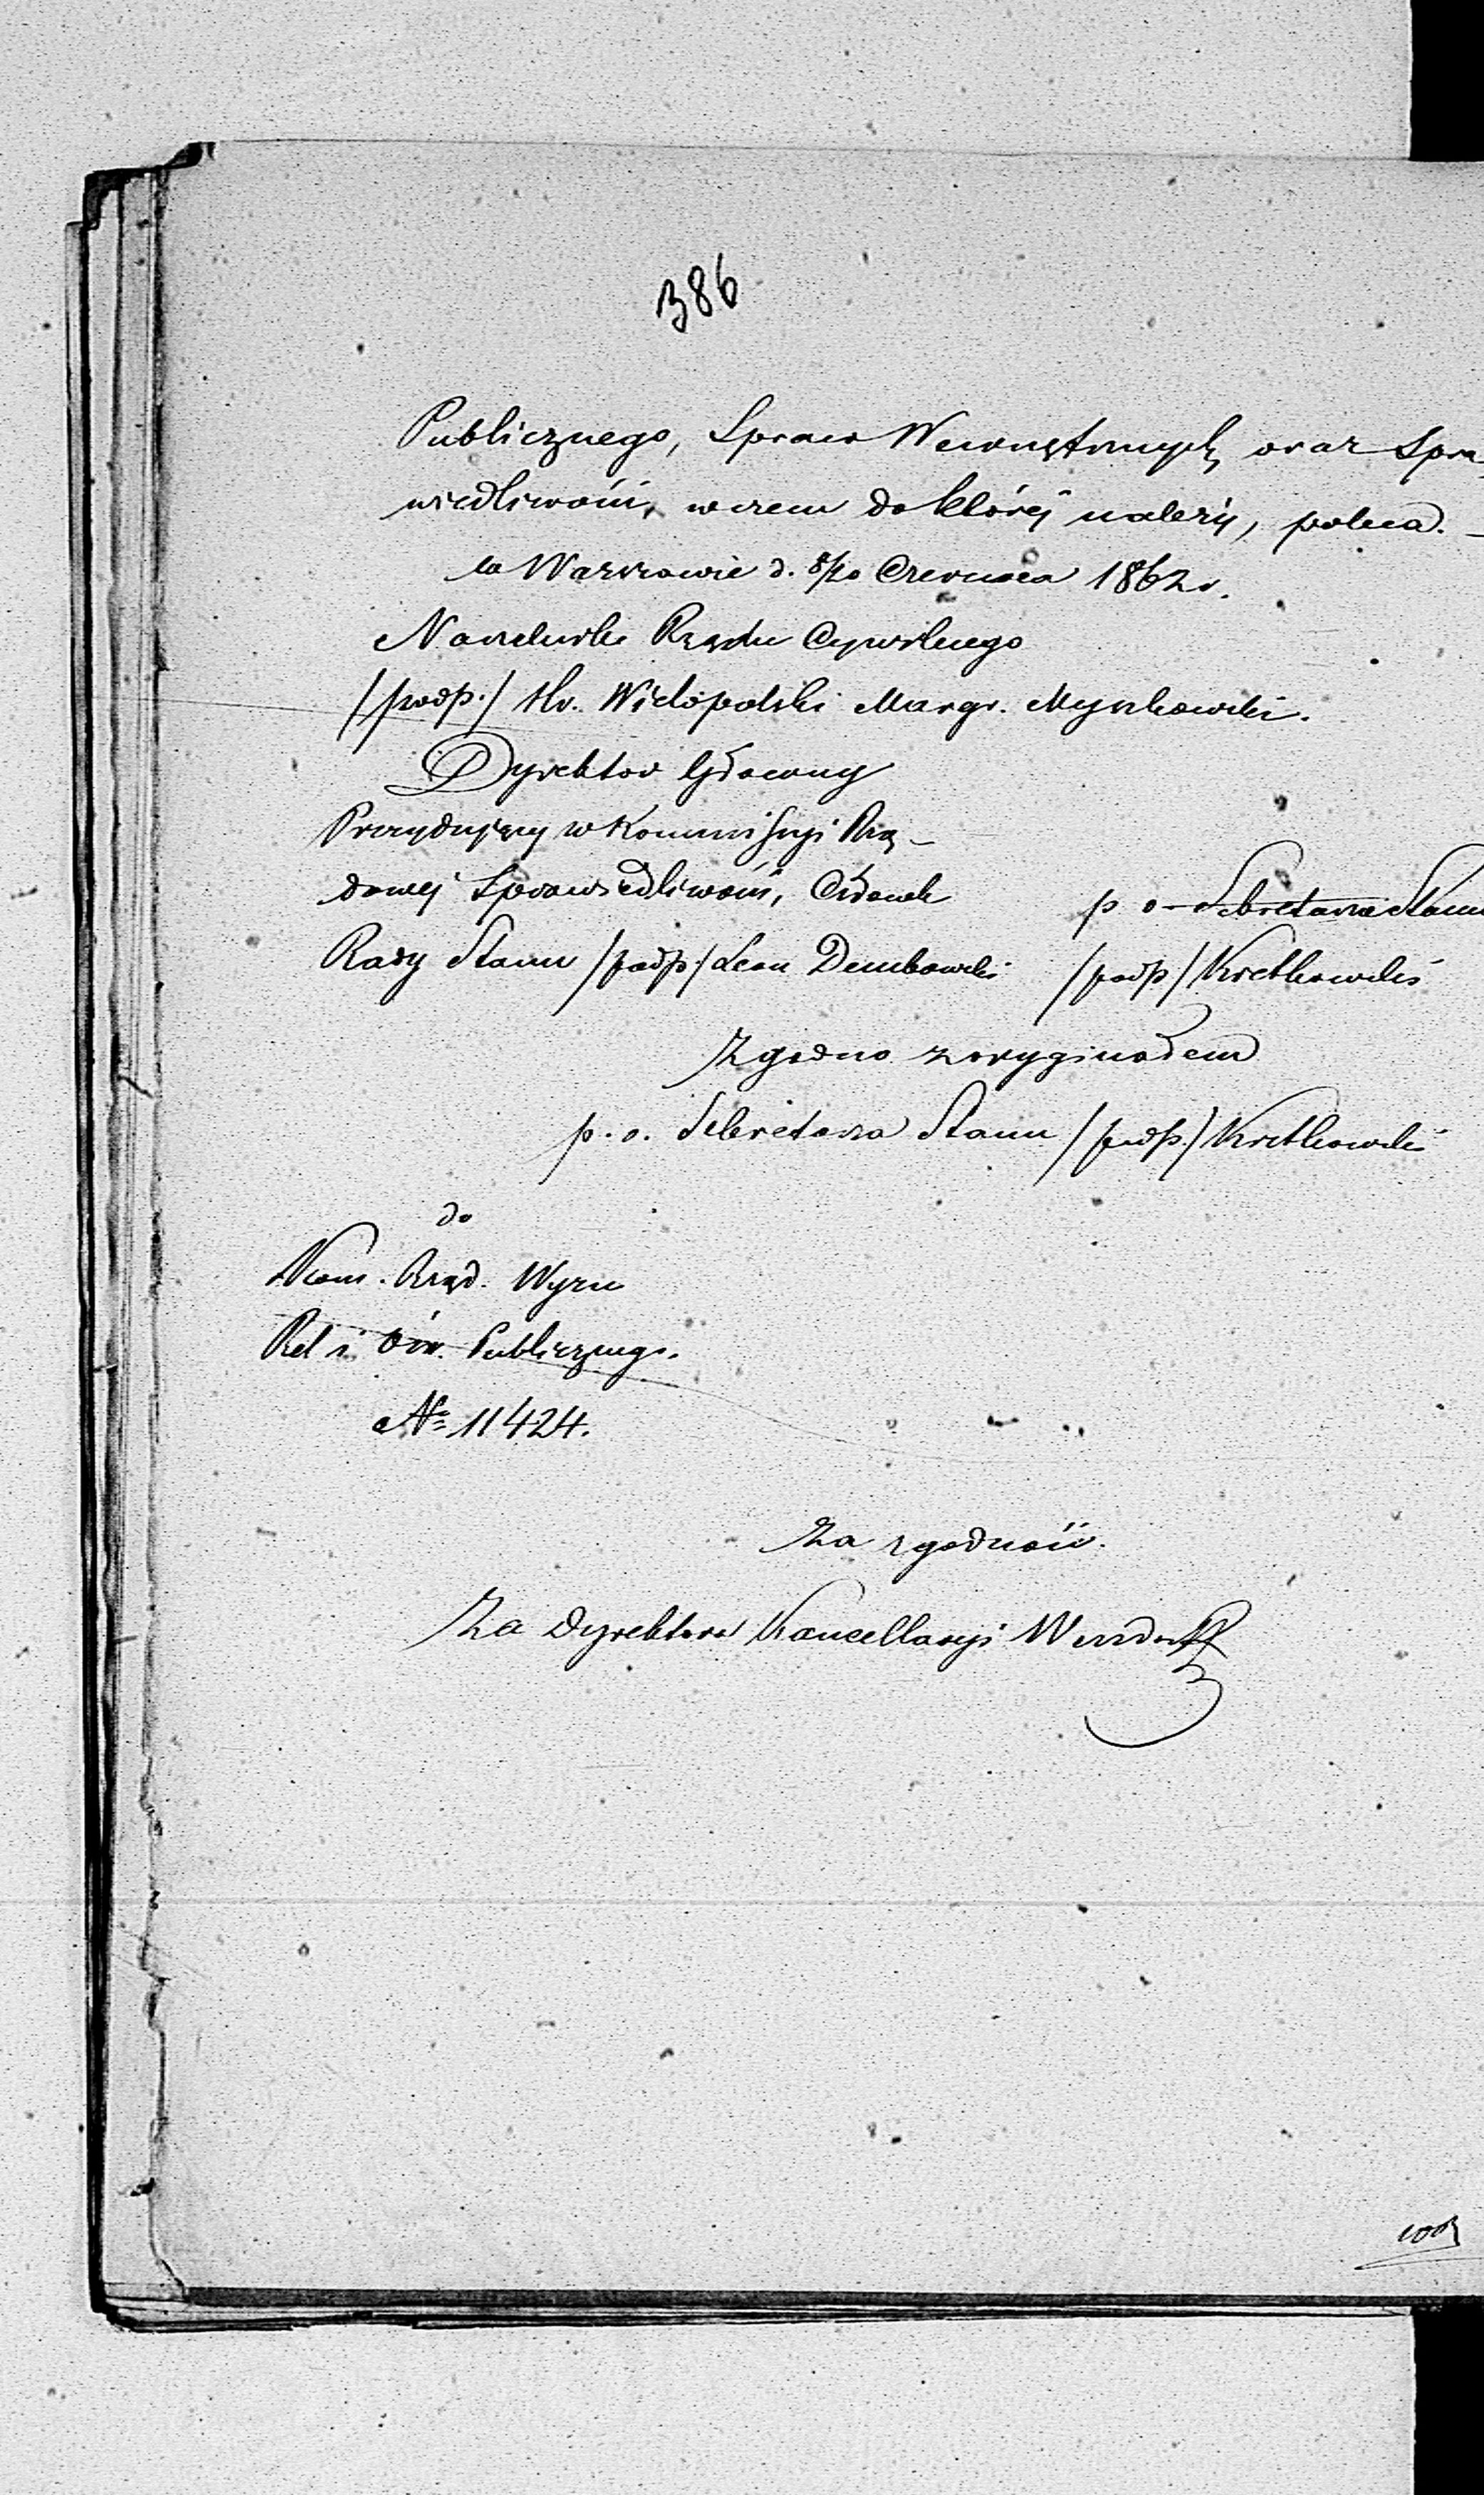 386
Publicznego, Spraw Wewnętrznych, oraz Spra-
wiedliwości, w czem do której należy, poleca. -
w Warszawie d. 8/20 Czerwca 1862 r.
Naczelnik Rządu Cywilnego
/podp./ Hr. Wielopolski Margr. Myszkowski.
Dyrektor Główny
Prezydujący w Kommissyi Rzą-
dowej Sprawiedliwości, Członek
p o Sekretarza Stanu
Rady Stanu /podp./ Leon Dembowski
/podp/ Kretkowski
Zgodno z oryginałem
p. o. Sekretarza Stanu /podp./ Kretkowski
do
Kom. Rząd. Wyzn
Rel i Ośw. Publiczneg.
№ 11424.
Za zgodność.
Za Dyrektora Kancellaryi